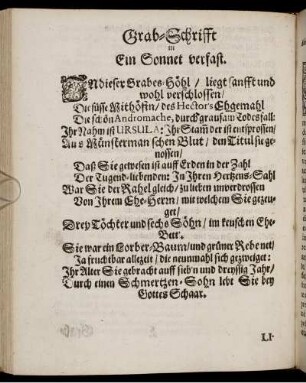 Grab-Schrifft
in
Ein Sonnet verfast.
IN dieser Grabes-Höhl / liegt sanfft und
wohl verschlossen /
Die süsse Withöfin / des Hectors Ehgemahl
Die schön Andromache, durch grausam Todesfall:
Ihr Nahm ist URSULA: Ihr Stam̃ der ist entsprossen /
Aus Münsterman schen Blut / den Titul sie ge-
nossen /
Daß Sie gewesen ist auff Erden in der Zahl
Der Tugend-liebenden: In Ihren Hertzens-Sahl
War Sie der Rahel gleich / zu lieben unverdrossen
Von Ihrem Ehe-Herrn / mit welchem Sie gezeu-
get /
Drey Töchter und sechs Söhn / im keuschen Eh-
Bett'.
Sie war ein Lorber-Baum / und grüner Rebe nett /
Ja fruchtbar allezeit / die neunmahl sich gezweiget:
Ihr Alter Sie gebracht auff sieb'n und dreyssig Jahr /
Durch einen Schmertzen-Sohn lebt Sie bey
Gottes Schaar.